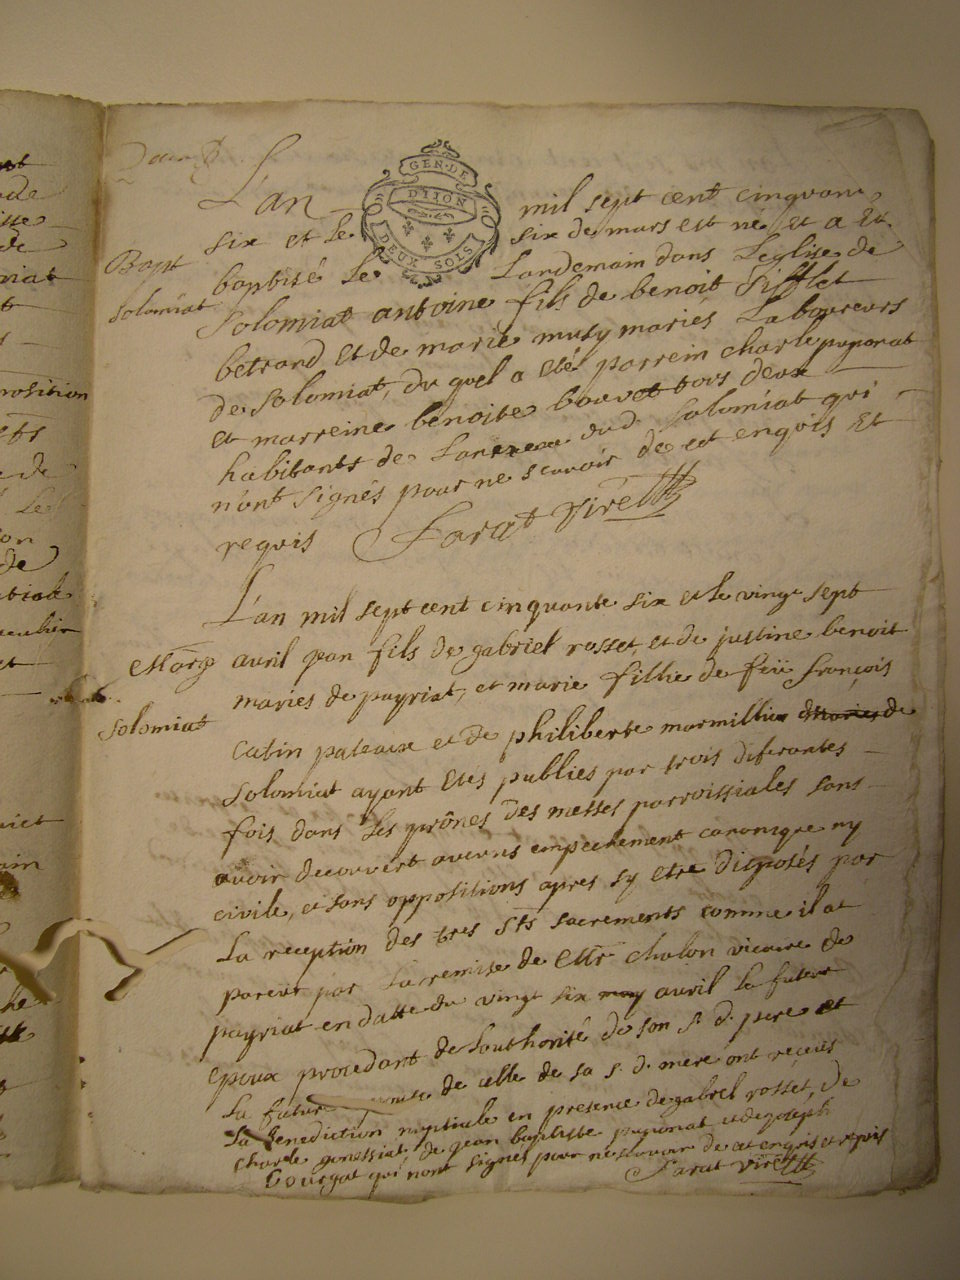 GEN·DE
DIJON
DEUX SOLS
L'an mil sept cent cinquante
six et le six de mars est né et a eté
Bapt
baptisé le Landemain dans Leglise de
solomiat
Solomiat antoine fils de benoit Sifflet
betrand et de marie musy mariés Laboureurs
de Solomiat, du quel a eté parrein charle puponat
et marreine benoite bouvet tous deux
habitants de dud. solomiat qui
n'ont signés pour ne scavoir de ce enquis et
requis Farat vire
L'an mil sept cent cinquante six et le vingt sept
Marg
avril jean fils de gabriel rosset, et de justine benoit
maries de payriat, et marie fillie de feü françois
solomiat
Catin pateaux et de philiberte marmillion de
Solomiat ayant etés publiés par trois diferantes
fois dans les prônes des messes parroissiales sans
avoir decouvert aucuns empechement canonique ny
civile, et sans oppositions apres sy etre disposés par
La reception des tres sts sacrements comme il at
pareut par La remise de Mr chalon vicaire de
payriat en datte du vingt six avril le futeur
epoux procedant de Lauthorité de son s. d. pere et
La future de celle de sa s. d. mere ont reçeus
La Benediction nuptiale en presence de gabriel rosset, de
charle gonessiat, de jean baptiste puponat et de joseph
Bourgat qui nont signés pour ne scavoir de ce enquis et requis
Farat vire